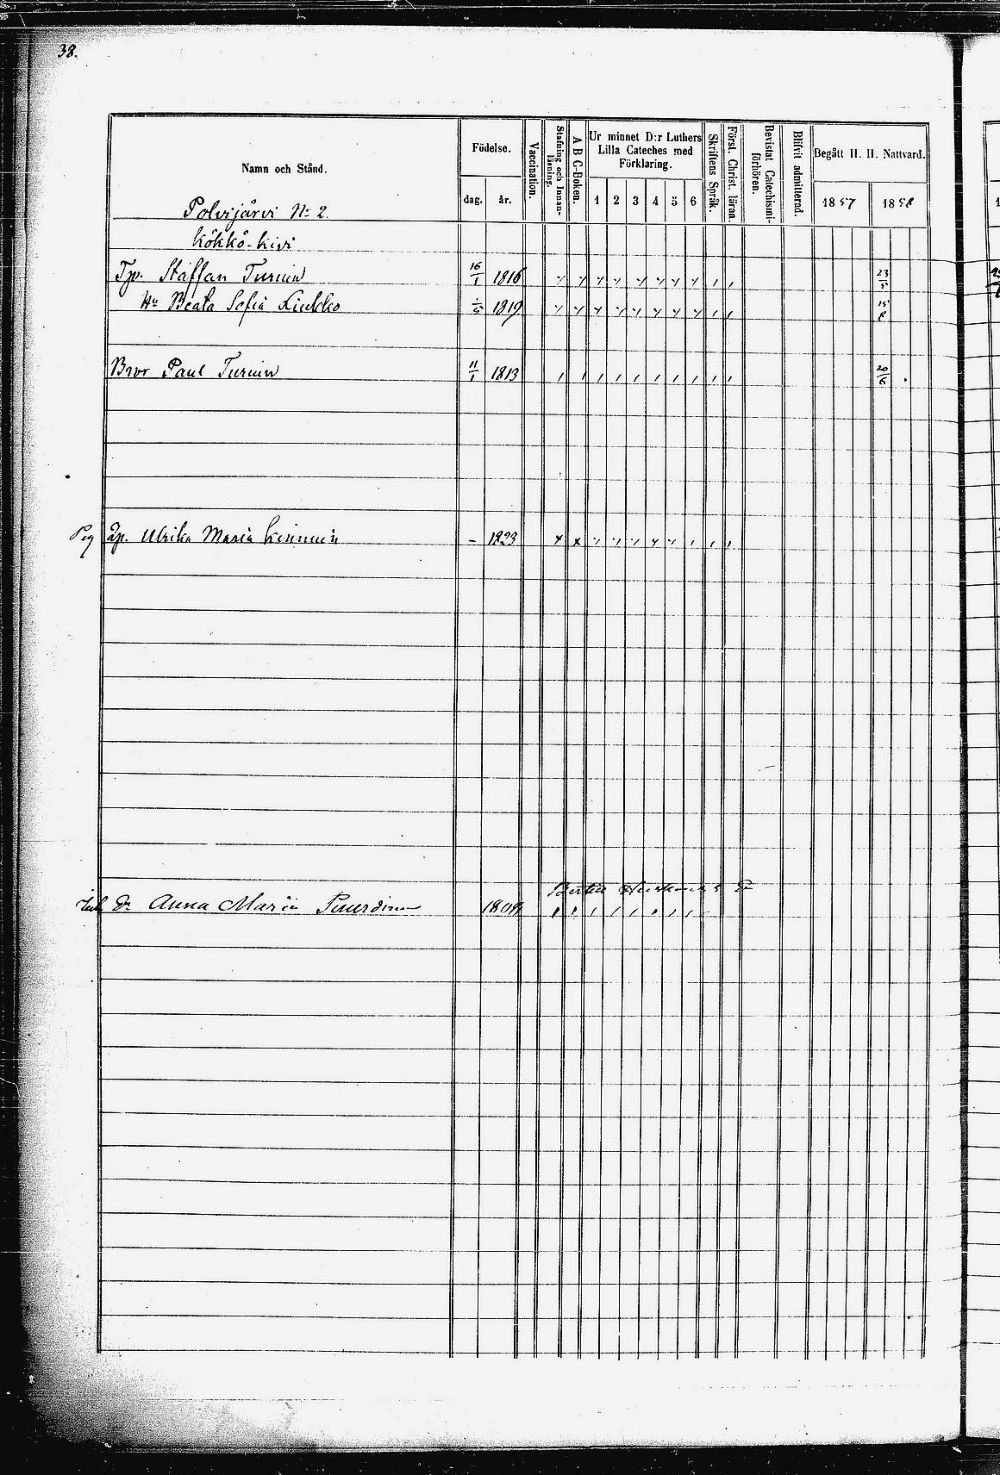 38.
Namn och Stånd.
Födelse.
dag. år.
Vaccination.
Stafning och Innanläsning.
A B C-Boken.
Ur minnet D:r Luthers Lilla Cateches med Förklaring.
1 2 3 4 5 6
Skriftens Språk.
Först. Christ. läran.
Bevistat Catechismi-förhören.
Blifvit admitterad.
Begått H. H. Nattvard.
1857 1858
Polvijärvi No 2
Kökkö-kivi
Tp. Staffan Turuin 16/1 1816 23/5
Hu Beata Sofia 1819 15/8
Bror Paul Turuin 11/1 1813 20/6
Pig Ulrika Maria Kinnuin – 1823
Anna Maria 1809